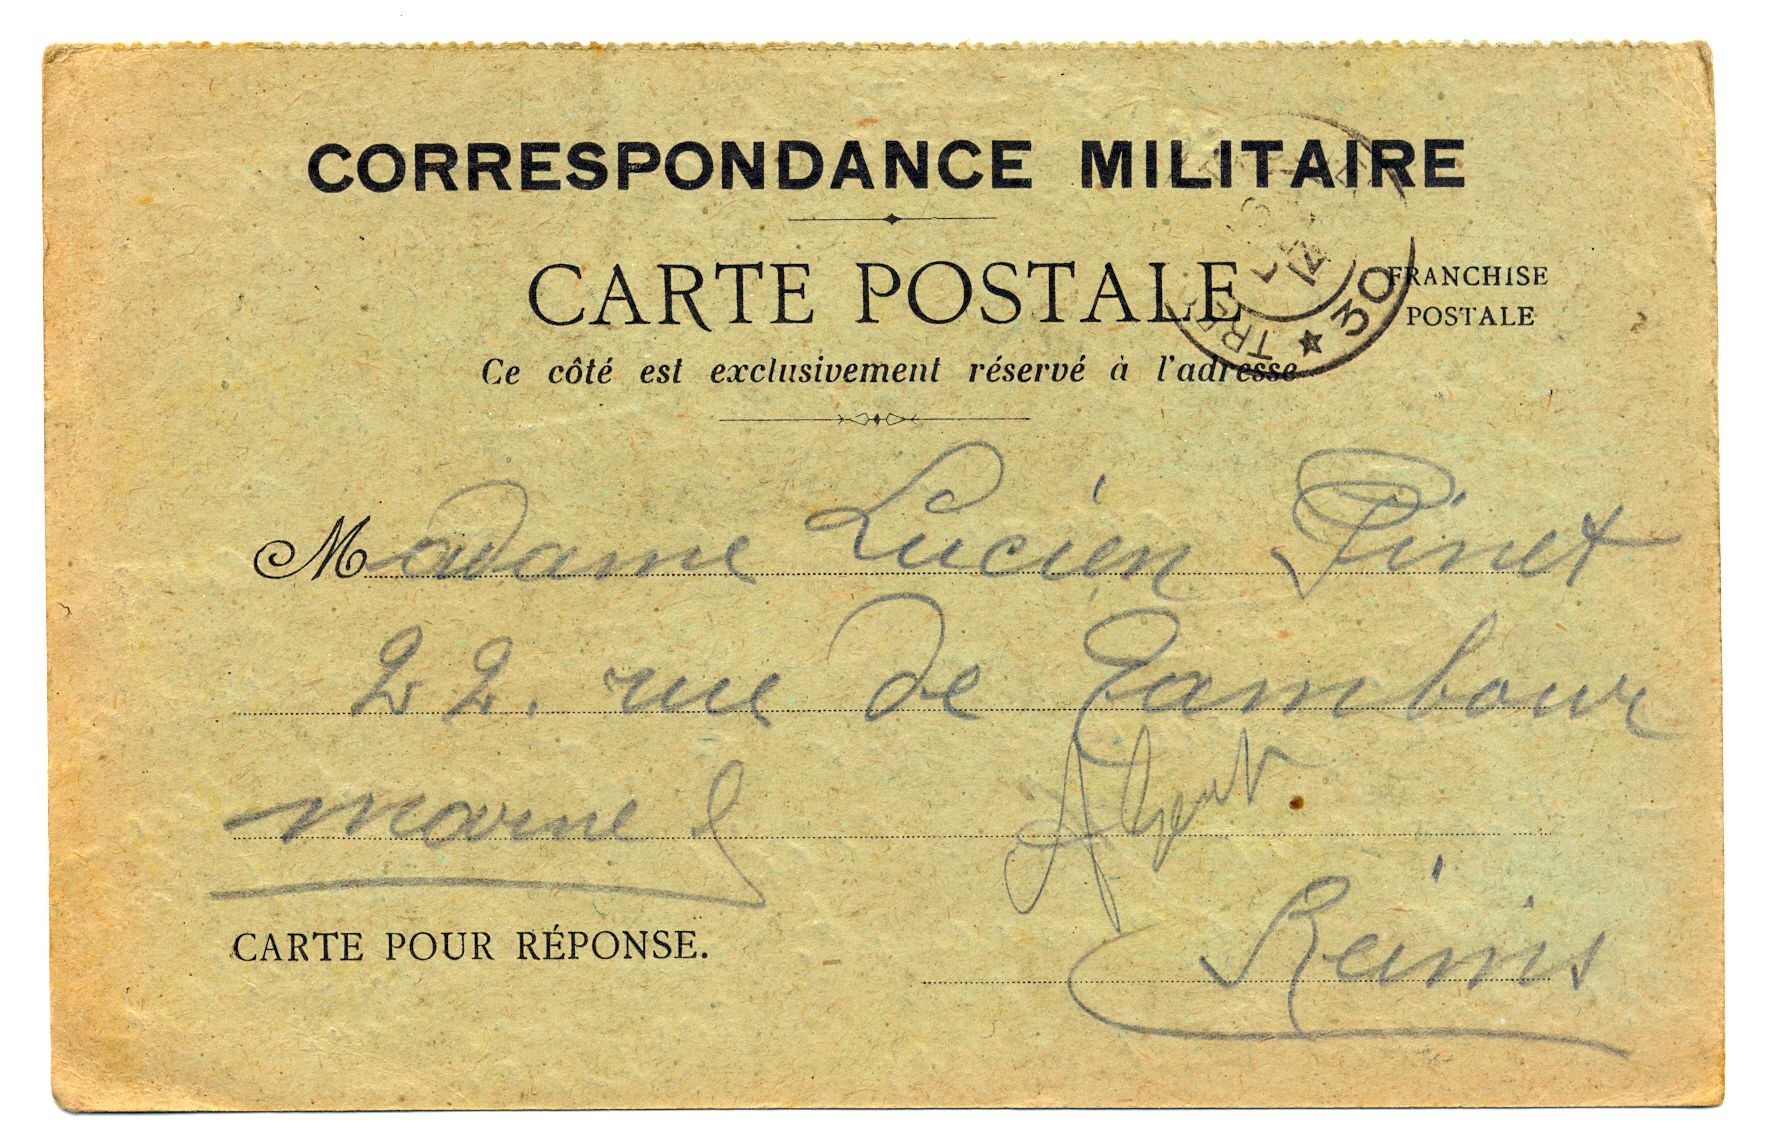 CORRESPONDANCE MILITAIRE
CARTE POSTALE
FRANCHISE
POSTALE
Ce côté est exclusivement réservé à l'adresse
30
Madame Lucien Pinet
22. rue de Tambour
Marne
Reims
CARTE POUR RÉPONSE.